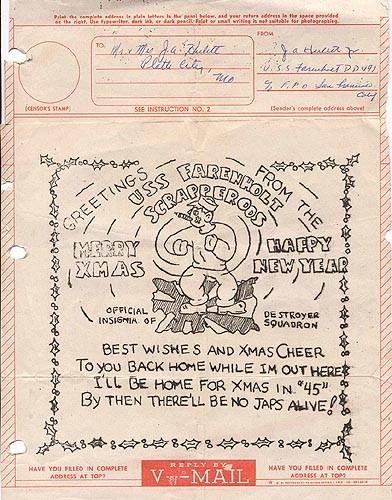 Print the complete address in plain letters in the panel below, and your return address in the space provided
on the right. Use typewriter, dark ink, or dark pencil. Faint or small writing is not suitable for photographing.
TO:
Mr & Mrs J.A.
Platte City,
Mo
FROM
J A Jr.
U.S.S. Farenholt DD 491
c/o F.P.O San Francisco
Calif
(CENSOR'S STAMP)
SEE INSTRUCTION NO. 2
(Sender's complete address above)
GREETINGS FROM THE
USS FARENHOLT
SCRAPPEROOS
MERRY XMAS
HAPPY NEW YEAR
OFFICIAL INSIGNIA OF DESTROYER SQUADRON
BEST WISHES AND XMAS CHEER
TO YOU BACK HOME WHILE IM OUT HERE
I'LL BE HOME FOR XMAS IN "45"
BY THEN THERE'LL BE NO JAPS ALIVE!
HAVE YOU FILLED IN COMPLETE
ADDRESS AT TOP?
REPLY BY
V-MAIL
HAVE YOU FILLED IN COMPLETE
ADDRESS AT TOP?